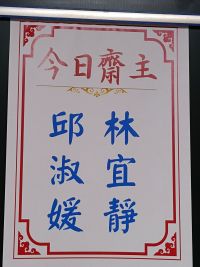 今日齋主
林宜靜
邱淑媛